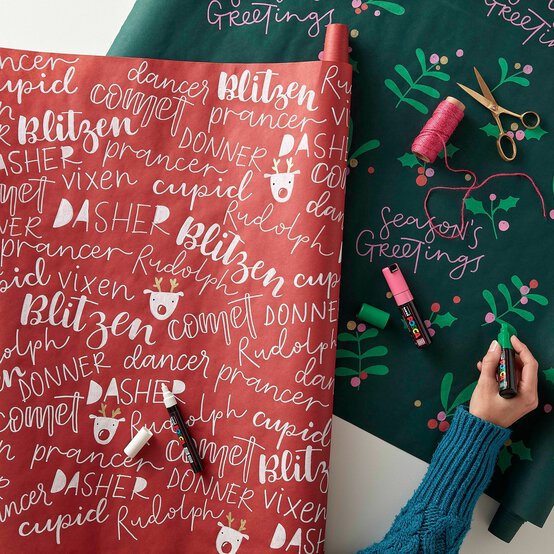 Season's
Greetings
Greetings
cupid dancer Blitzen Ru
comet prancer
Blitzen DONNER DASHER
DASHER prancer
comet vixen cupid dancer
DASHER Rudolph
prancer Blitzen
Rudolph cupid
cupid vixen
Blitzen comet DONNER
Rudolph dancer Rudolph
DONNER prancer
DASHER Rudolph cupid
comet comet Blitzen
prancer DASHER DONNER vixen
cupid Rudolph
Season's
Greetings
POSCA
POSCA